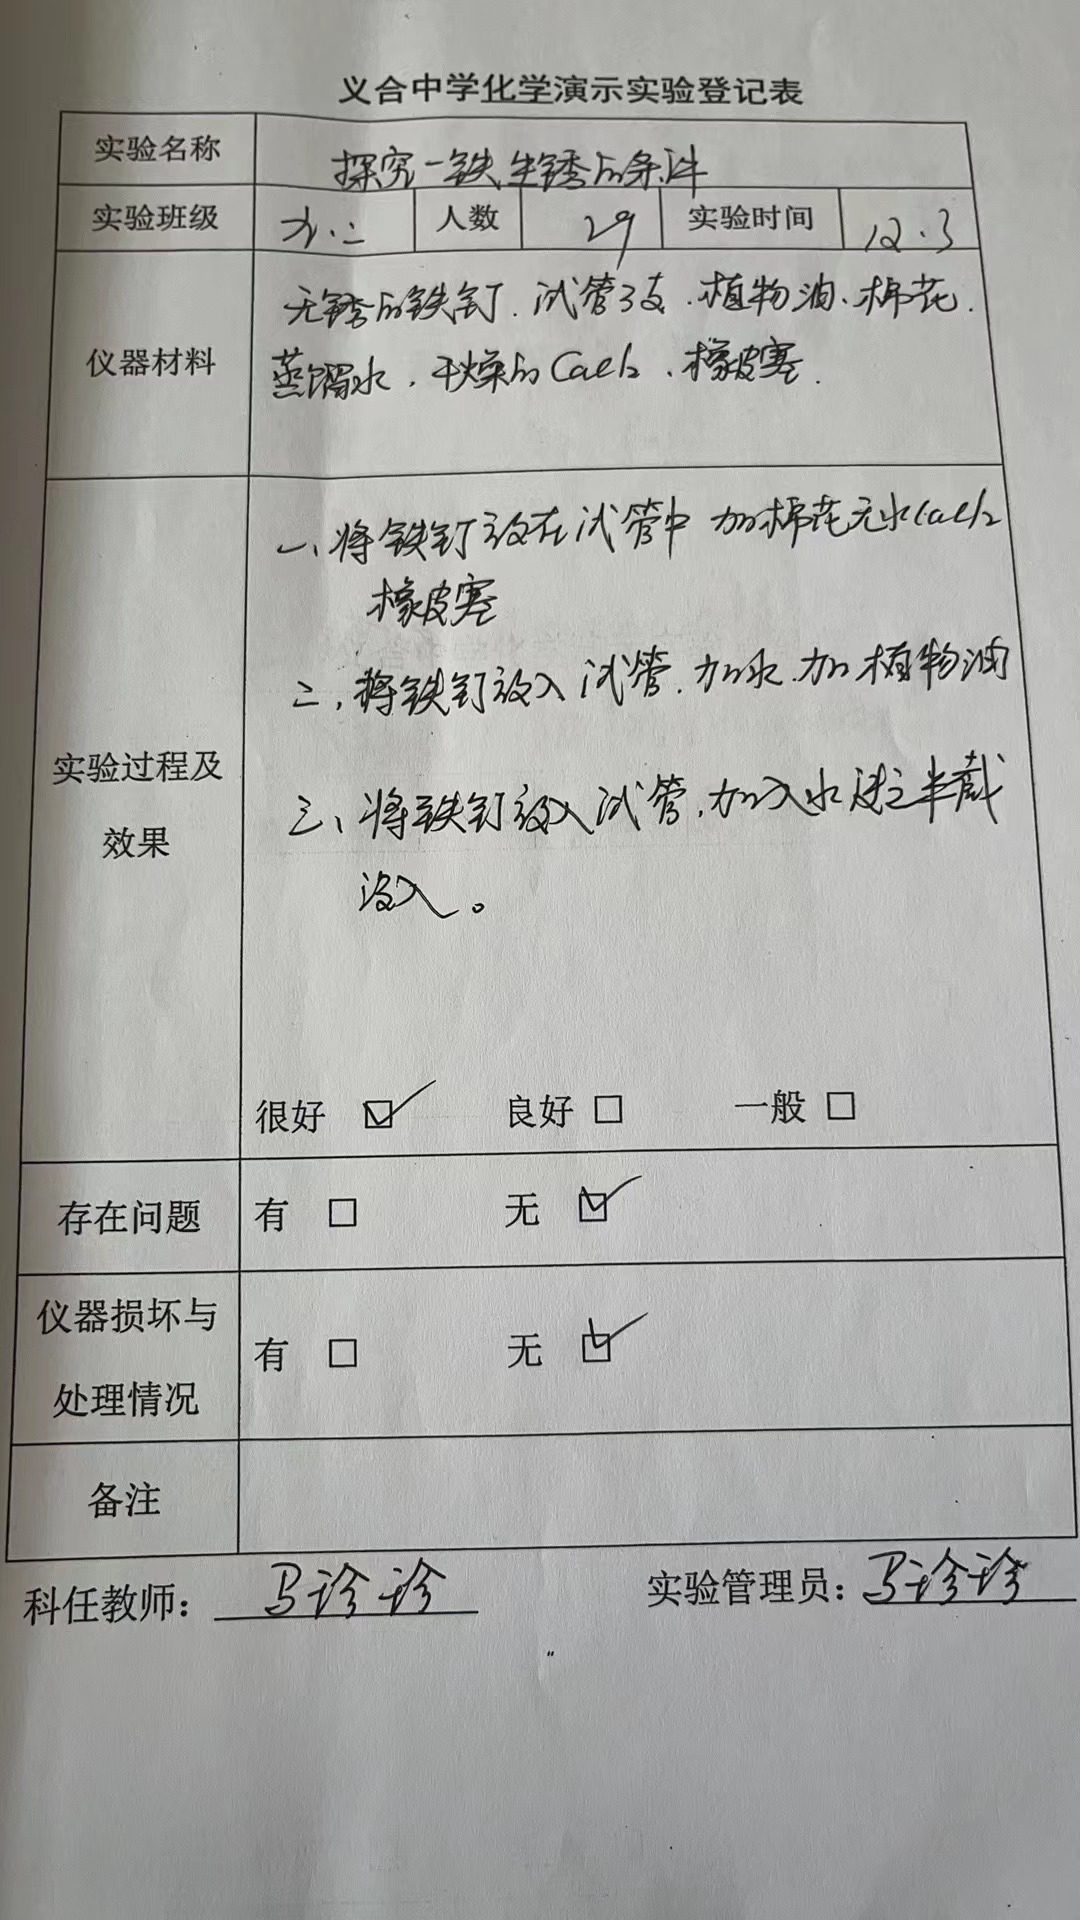 义合中学化学演示实验登记表
实验名称 探究一铁生锈的条件
实验班级 九.二 人数 29 实验时间 12.3
无锈的铁钉.试管3支.植物油、棉花.
仪器材料
蒸馏水.干燥的CaCl2、橡皮塞.
一、将铁钉放在试管中 加棉花无水CaCl2
橡皮塞
二.将铁钉放入试管.加水.加植物油
实验过程及
三、将铁钉放入试管,加入水 半截
效果
没入。
很好 ☑ 良好 □ 一般 □
存在问题 有 □ 无 ☑
仪器损坏与
有 □ 无 ☑
处理情况
备注
科任教师: 马诊诊 实验管理员: 马诊诊